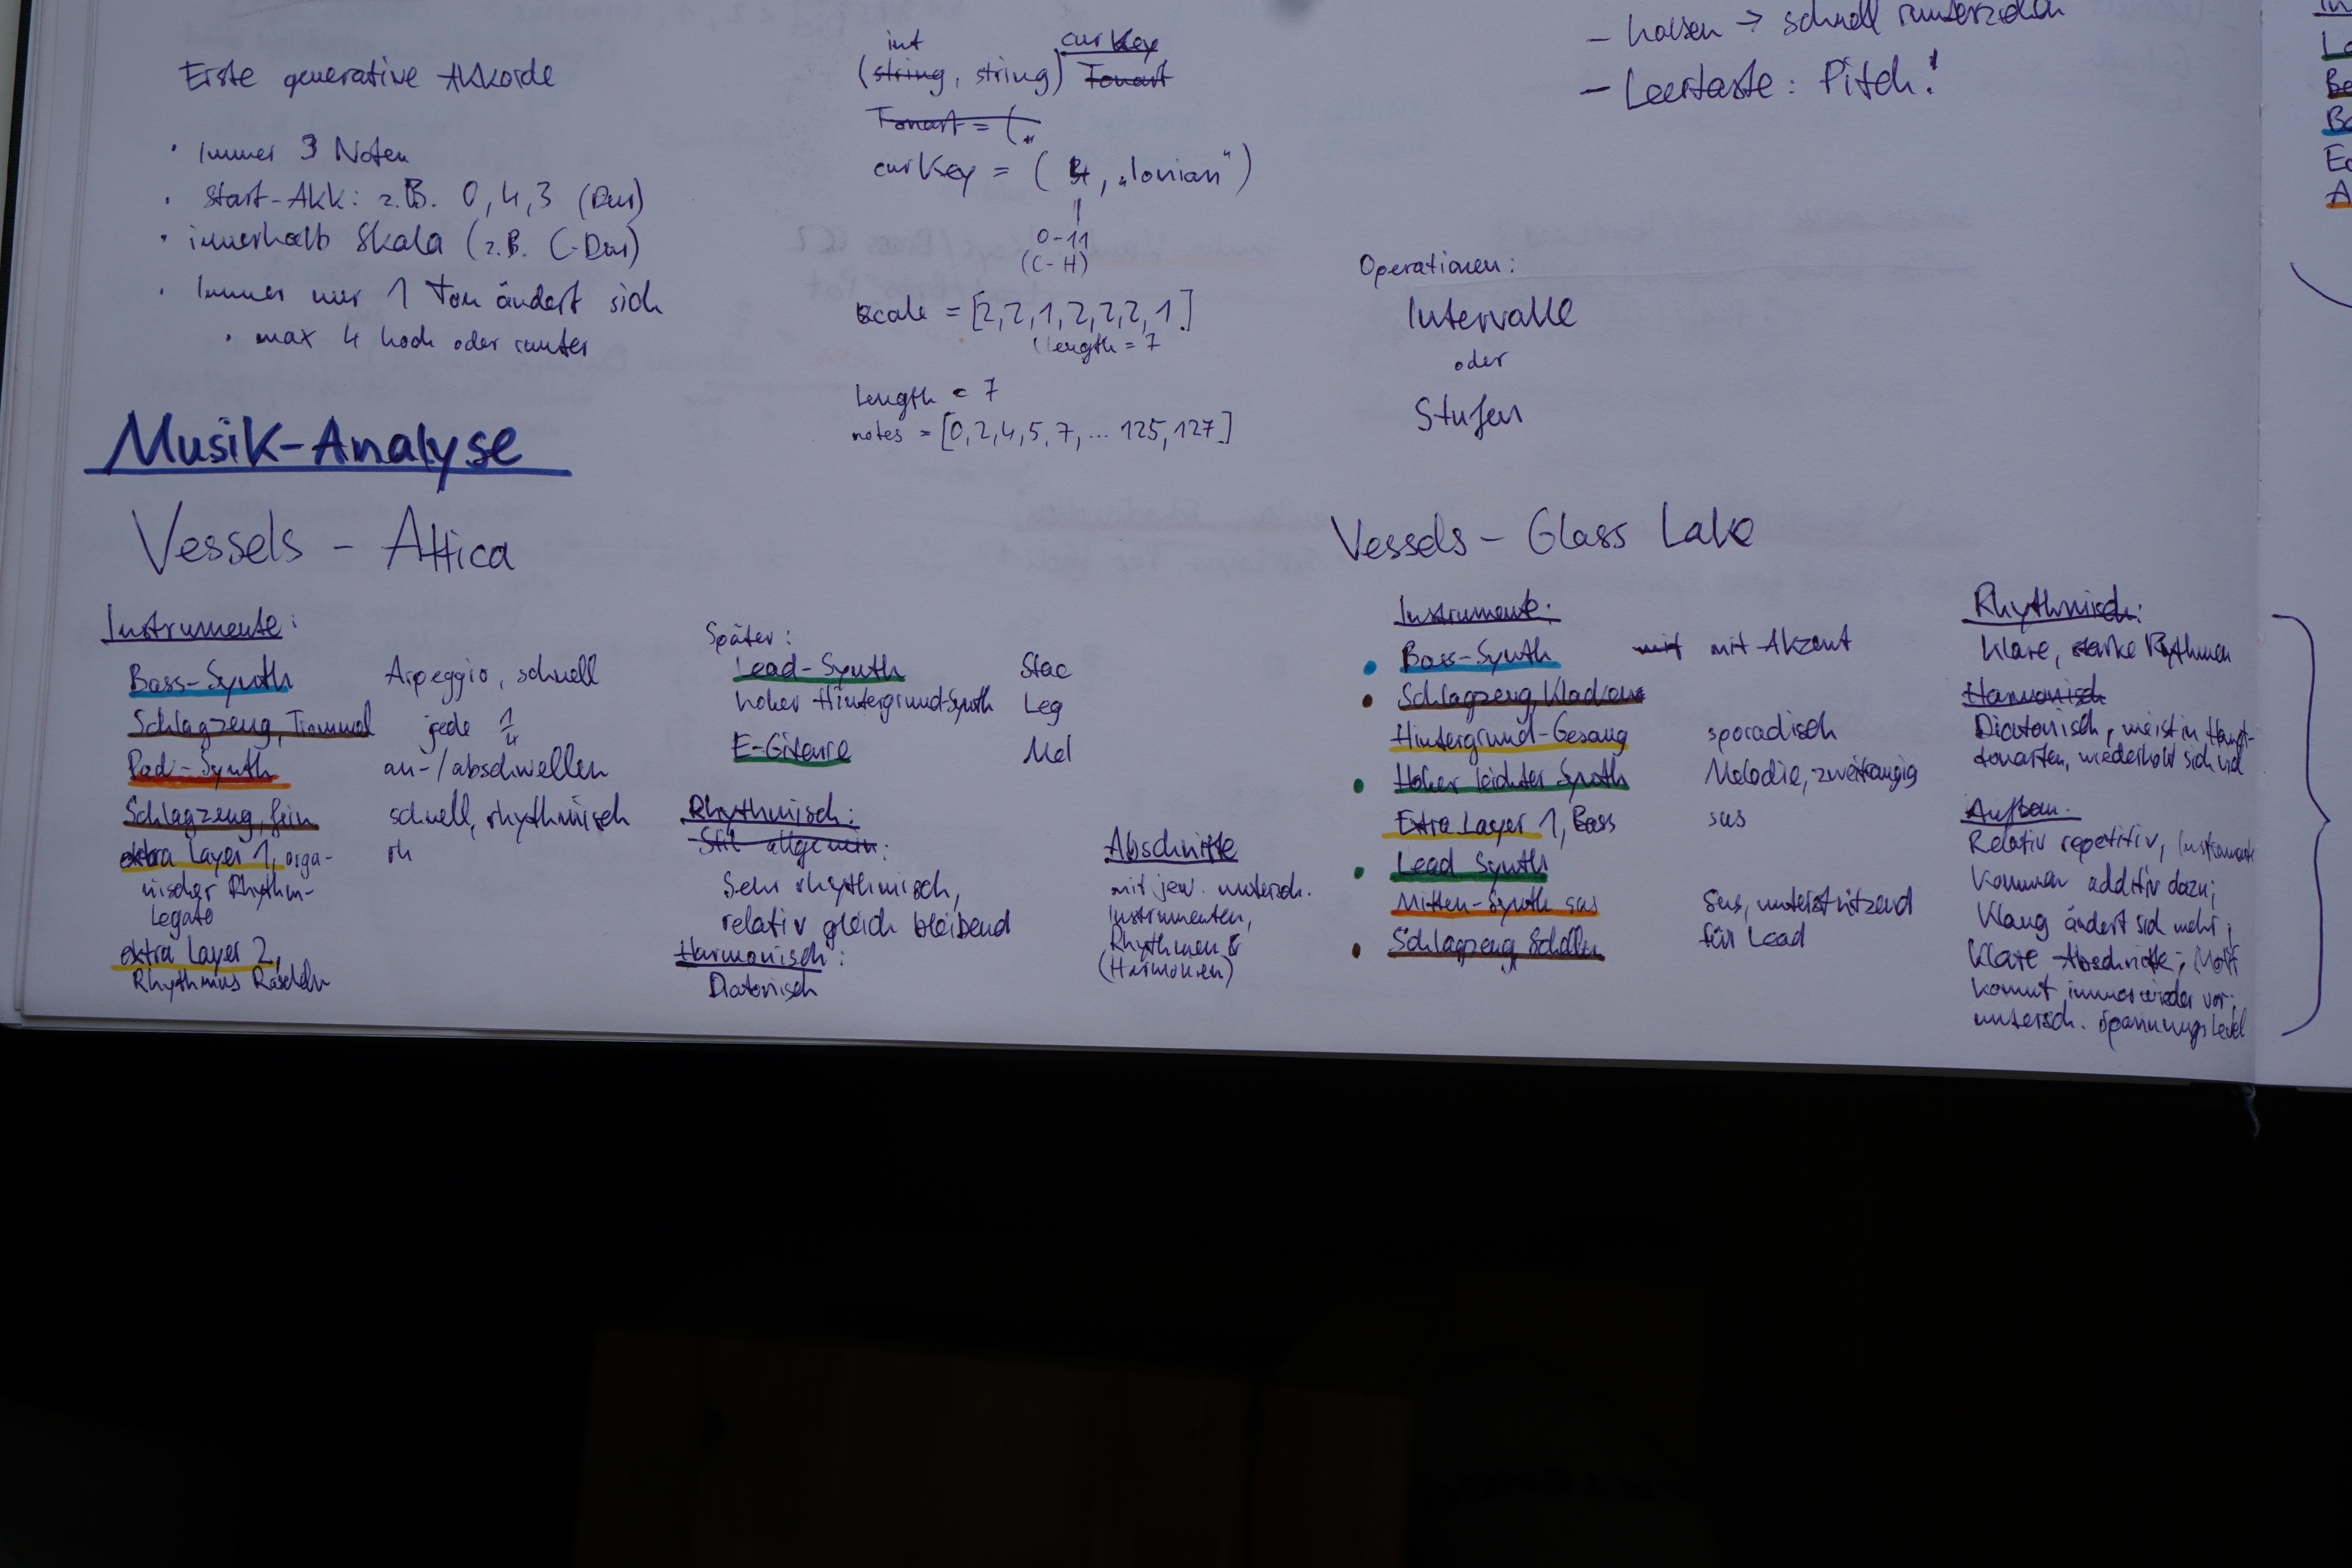 Erste generative Akkorde
· Immer 3 Noten
· Start-Akk: z.B. 0,4,3 (Dur)
· innerhalb Skala (z.B. C-Dur)
· Immer nur 1 Ton ändert sich
· max 4 hoch oder runter
int curKey
(string, string) Tonart
Tonart = („
curKey = ( 4, „Ionian")
0-11
(C-H)
scale = [2,2,1,2,2,2,1]
(length = 7
length = 7
notes = [0,2,4,5,7,... 125,127]
→ schnell runterziehen
- Leertaste: Pitch!
Operationen:
Intervalle
oder
Stufen
Musik-Analyse
Vessels - Attica
Instrumente:
Bass-Synth Arpeggio, schnell
Schlagzeug, Trommel jede 1/4
Pad-Synth an-/abschwellen
Schlagzeug, fein schnell, rhythmisch
extra Layer 1, orga- rh
nischer Rhythm-
Legato
extra Layer 2,
Rhythmus Rascheln
Später:
Lead-Synth Stac
hoher Hintergrund-Synth Leg
E-Gitarre Mel
Rhythmisch:
Stil allgemein:
Sehr rhythmisch,
relativ gleich bleibend
Harmonisch:
Diatonisch
Abschnitte
mit jew. untersch.
Instrumenten,
Rhythmen &
(Harmonien)
Vessels - Glass Lake
Instrumente:
Bass-Synth mit mit Akzent
Schlagzeug,
Hintergrund-Gesang sporadisch
Hoher leichter Synth Melodie, zweitrangig
Extra Layer 1, Bass sus
Lead Synth
Mitten-Synth sus Sus, unterstützend
Schlagzeug Schellen für Lead
Rhythmisch:
Klare, starke Rythmen
Harmonisch
Diatonisch, meist in Haupt-
tonarten, wiederholt sich viel
Aufbau:
Relativ repetitiv, Instrumente
kommen additiv dazu;
Klang ändert sich mehr;
Klare Abschnitte; Motiv
kommt immer wieder vor;
untersch. Spannungs Level